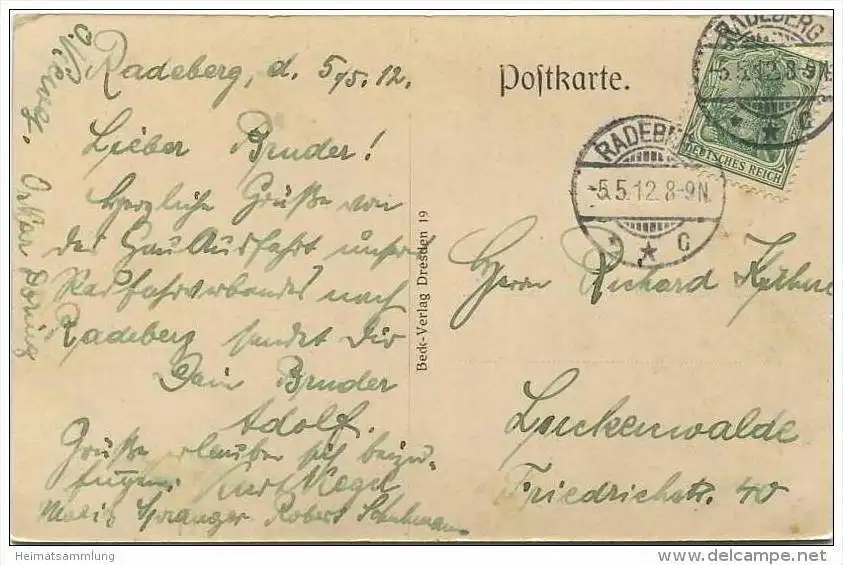 Radeberg, d. 5/5.12.
Lieber Bruder!
Herzliche Grüße von
der GauAusfahrt unseres
Radfahrerbandes nach
Radeberg sendet Dir
Dein Bruder
Adolf.
Grüße erlauben sich beizu-
fügen
Robert Schuhmann
Oskar Döring
Postkarte.
RADEBERG
5.5.12.8-9N.
* * c
DEUTSCHES REICH
RADEB
5.5.12.8-9N.
* c
Herrn Richard
Luckenwalde
Friedrichstr. 40
Beck-Verlag Dresden 19
Heimatsammlung
www.delcampe.net